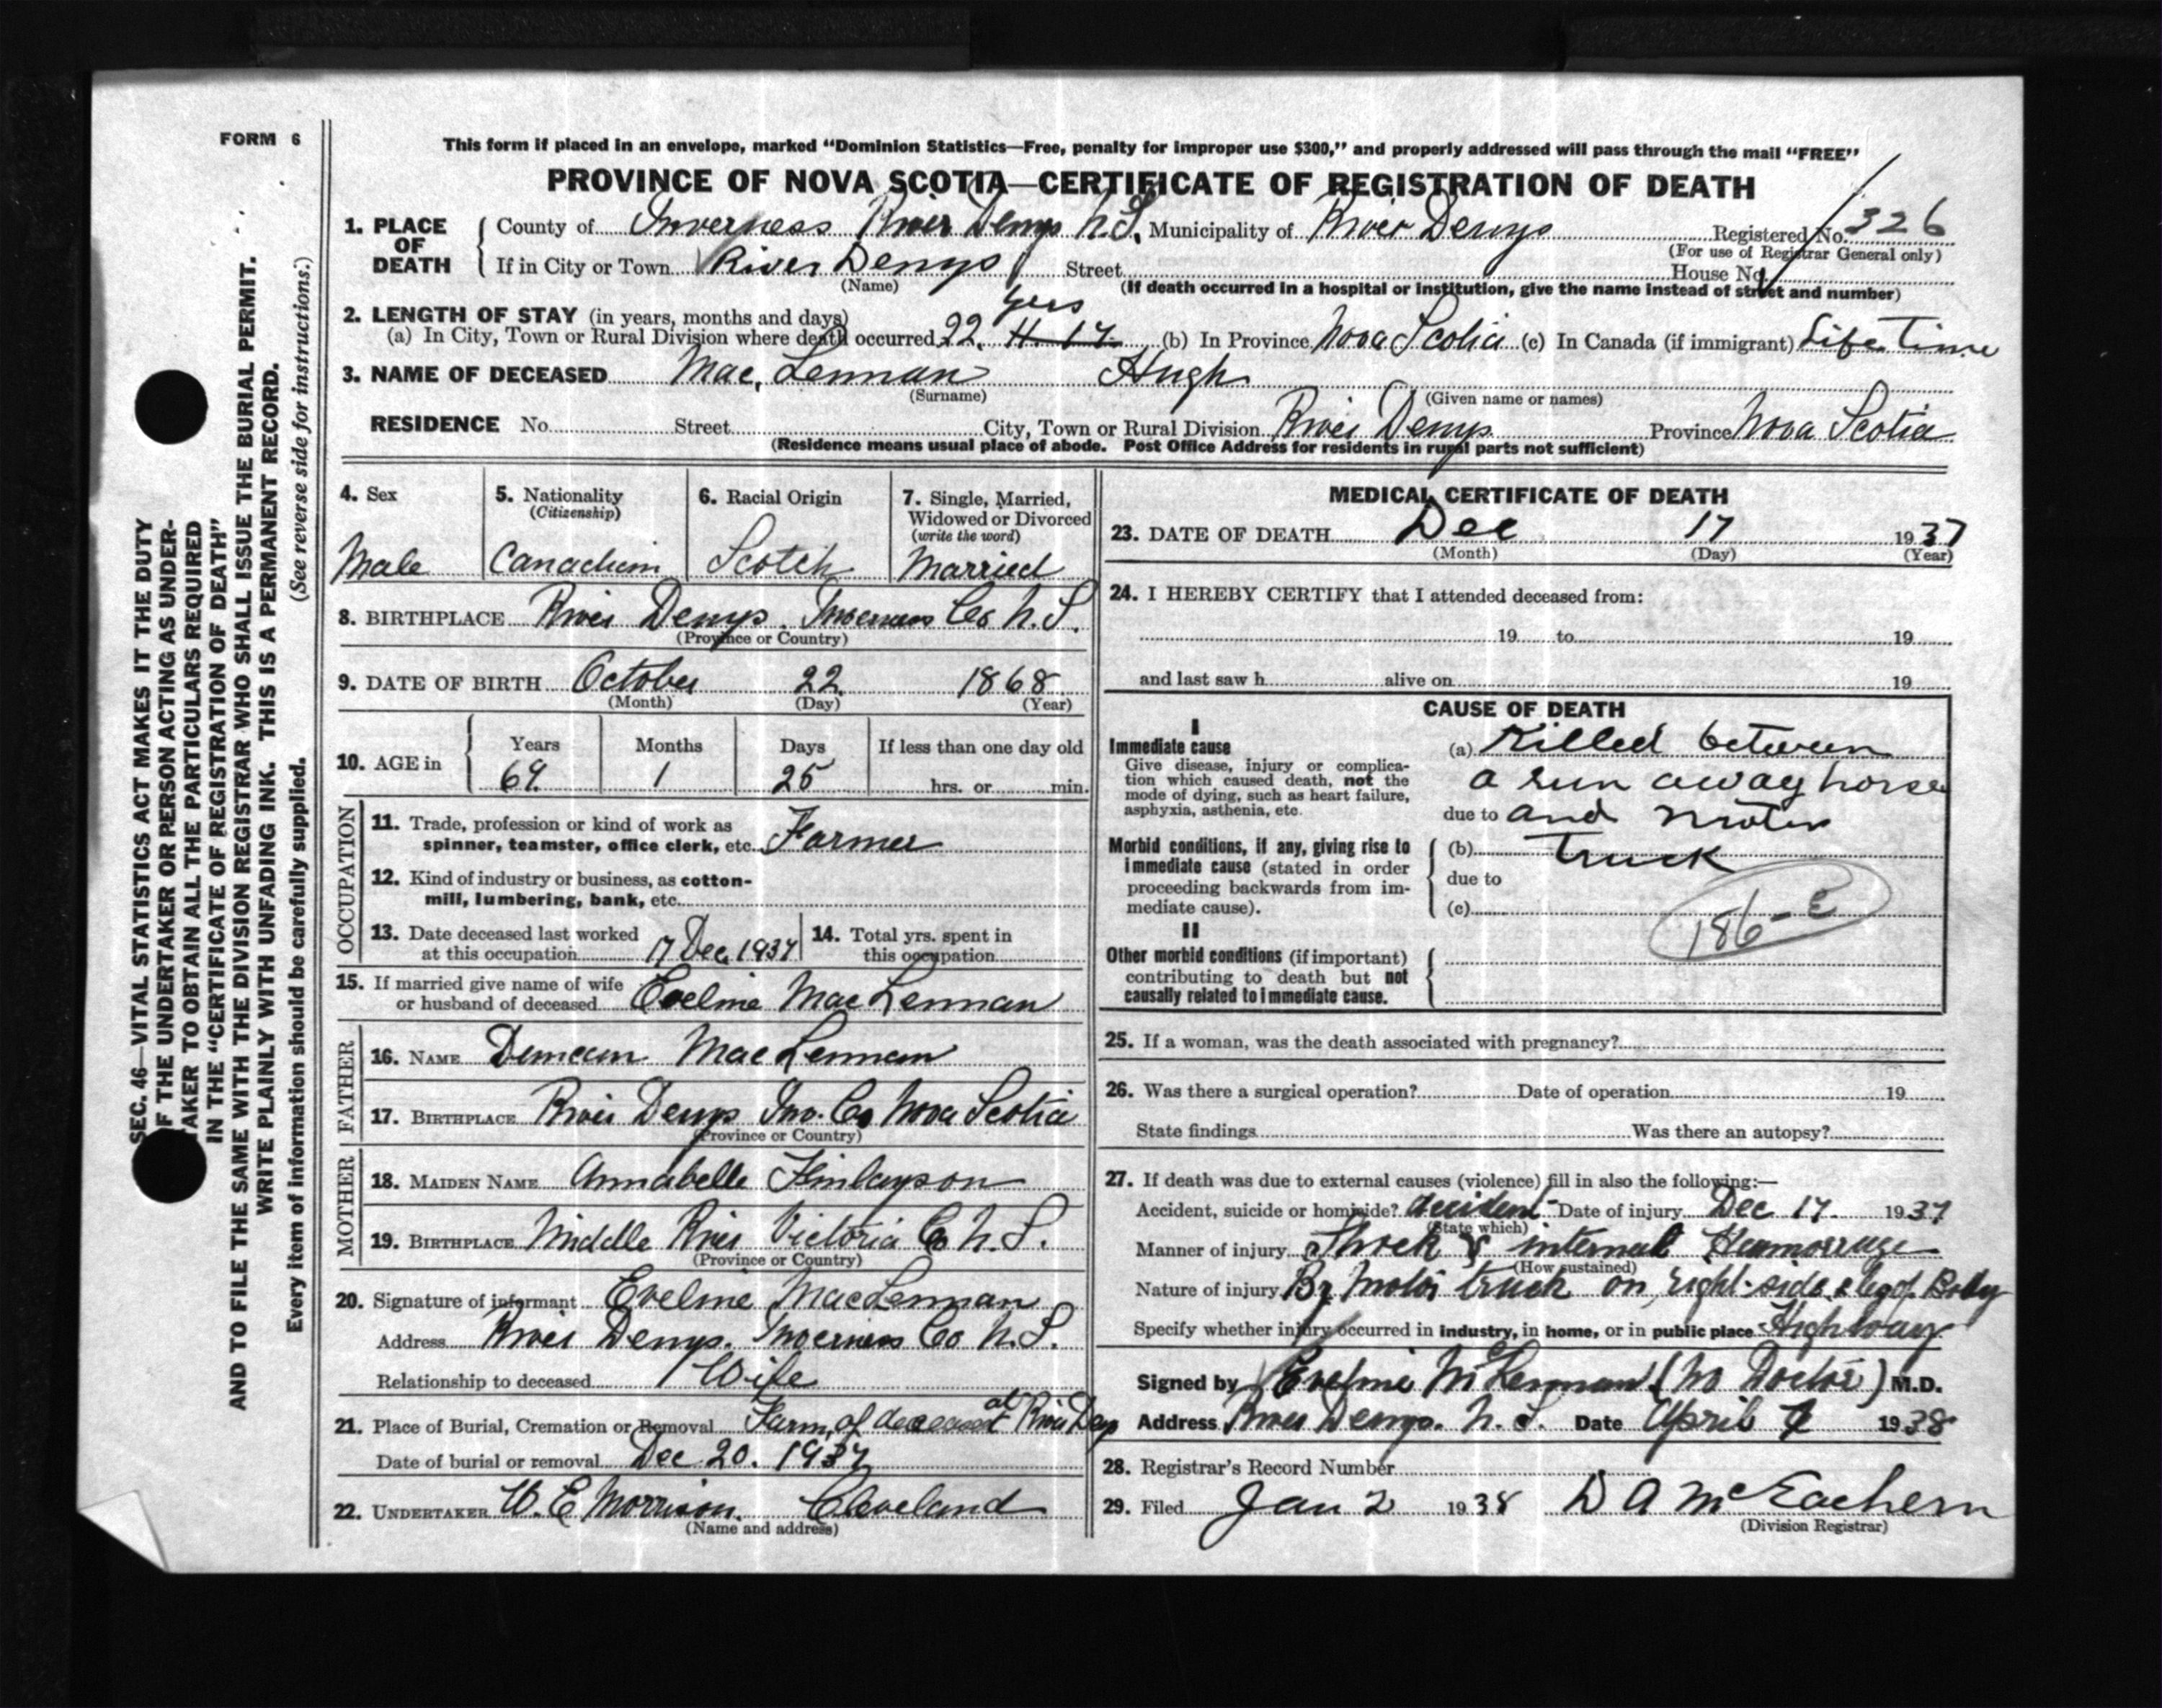 FORM 6
This form if placed in an envelope, marked "Dominion Statistics—Free, penalty for improper use $300," and properly addressed will pass through the mail "FREE"
PROVINCE OF NOVA SCOTIA—CERTIFICATE OF REGISTRATION OF DEATH
1. PLACE OF DEATH
County of Inverness River Denys N.S. Municipality of River Denys Registered No. 326
(For use of Registrar General only)
If in City or Town River Denys Street House No.
(Name)
(If death occurred in a hospital or institution, give the name instead of street and number)
2. LENGTH OF STAY (in years, months and days) yrs
(a) In City, Town or Rural Division where death occurred 22. (b) In Province Nova Scotia (c) In Canada (if immigrant) Life Time
3. NAME OF DECEASED Mac, Lennan Hugh
(Surname) (Given name or names)
RESIDENCE No. Street City, Town or Rural Division River Denys Province Nova Scotia
(Residence means usual place of abode. Post Office Address for residents in rural parts not sufficient)
4. Sex
Male
5. Nationality
(Citizenship)
Canadian
6. Racial Origin
Scotch
7. Single, Married,
Widowed or Divorced
(write the word)
Married
8. BIRTHPLACE River Denys. Inverness Co N.S.
(Province or Country)
9. DATE OF BIRTH October 22. 1868
(Month) (Day) (Year)
10. AGE in
Years Months Days If less than one day old
69. 1 25 hrs. or min.
OCCUPATION
11. Trade, profession or kind of work as
spinner, teamster, office clerk, etc. Farmer
12. Kind of industry or business, as cotton-
mill, lumbering, bank, etc.
13. Date deceased last worked
at this occupation 17 Dec. 1937
14. Total yrs. spent in
this occupation
15. If married give name of wife
or husband of deceased Eveline MacLennan
FATHER
16. NAME Duncan MacLennan
17. BIRTHPLACE River Denys Inv. Co Nova Scotia
(Province or Country)
MOTHER
18. MAIDEN NAME Annabelle Finlayson
19. BIRTHPLACE Middle River Victoria Co N.S.
(Province or Country)
20. Signature of informant Eveline MacLennan
Address River Denys. Inverness Co N.S.
Relationship to deceased Wife
21. Place of Burial, Cremation or Removal Farm of deceased at River Denys
Date of burial or removal Dec 20. 1937
22. UNDERTAKER W. E Morrison. Cleveland
(Name and address)
MEDICAL CERTIFICATE OF DEATH
23. DATE OF DEATH Dec 17 1937
(Month) (Day) (Year)
24. I HEREBY CERTIFY that I attended deceased from:
19 to 19
and last saw h alive on 19
CAUSE OF DEATH
I
Immediate cause
Give disease, injury or complica-
tion which caused death, not the
mode of dying, such as heart failure,
asphyxia, asthenia, etc.
(a) Killed between
a run away horse
due to and motor
Morbid conditions, if any, giving rise to
immediate cause (stated in order
proceeding backwards from im-
mediate cause).
(b) truck
due to
(c)
186-E
II
Other morbid conditions (if important)
contributing to death but not
causally related to immediate cause.
25. If a woman, was the death associated with pregnancy?
26. Was there a surgical operation? Date of operation 19
State findings Was there an autopsy?
27. If death was due to external causes (violence) fill in also the following:—
Accident, suicide or homicide? accident Date of injury Dec 17. 1937
(State which)
Manner of injury Shock & internal Heamorrage
(How sustained)
Nature of injury By motor truck on right-side & leg of Body
Specify whether injury occurred in industry, in home, or in public place Highway
Signed by Eveline McLennan (No Doctor) M.D.
Address River Denys. N.S. Date April 1938
28. Registrar's Record Number
29. Filed Jan 2 1938 D A McEachern
(Division Registrar)
SEC. 46—VITAL STATISTICS ACT MAKES IT THE DUTY
OF THE UNDERTAKER OR PERSON ACTING AS UNDER-
TAKER TO OBTAIN ALL THE PARTICULARS REQUIRED
IN THE "CERTIFICATE OF REGISTRATION OF DEATH"
AND TO FILE THE SAME WITH THE DIVISION REGISTRAR WHO SHALL ISSUE THE BURIAL PERMIT.
WRITE PLAINLY WITH UNFADING INK. THIS IS A PERMANENT RECORD.
Every item of information should be carefully supplied. (See reverse side for instructions.)